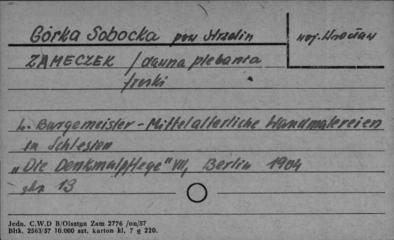 Górka Sobocka pow Strzelin
woj. Wrocław
ZAMECZEK / dawna plebania
freski
L. Burgemeister - Mittelalterliche Wandmalereien
in Schlesien
„Die Denkmalpflege" VII, Berlin 1904
str 13
Jedn. C.W.D B/Olsztyn Zam 2776 /on/57
Bltk. 2563/57 10.000 szt. karton kl. 7 g 220.